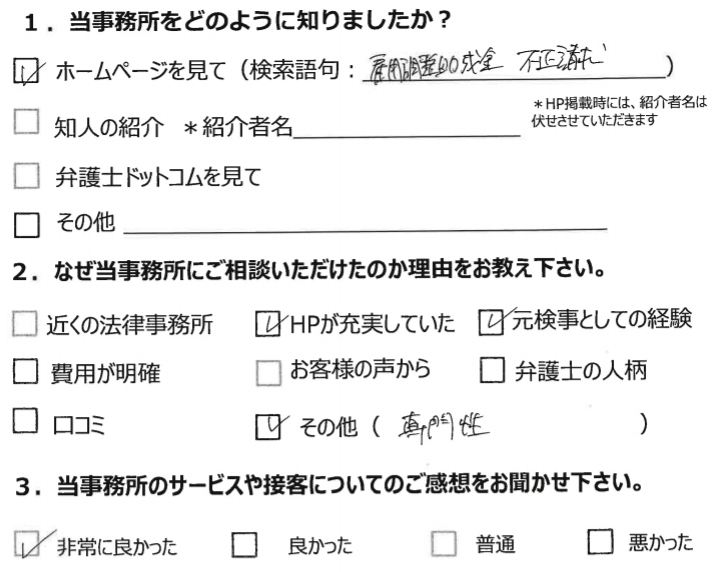 1．当事務所をどのように知りましたか？
ホームページを見て（検索語句：雇用調整助成金 不正請求）
知人の紹介 ＊紹介者名
＊HP掲載時には、紹介者名は
伏せさせていただきます
弁護士ドットコムを見て
その他
2．なぜ当事務所にご相談いただけたのか理由をお教え下さい。
近くの法律事務所 HPが充実していた 元検事としての経験
費用が明確 お客様の声から 弁護士の人柄
口コミ その他（専門性）
3．当事務所のサービスや接客についてのご感想をお聞かせ下さい。
非常に良かった 良かった 普通 悪かった